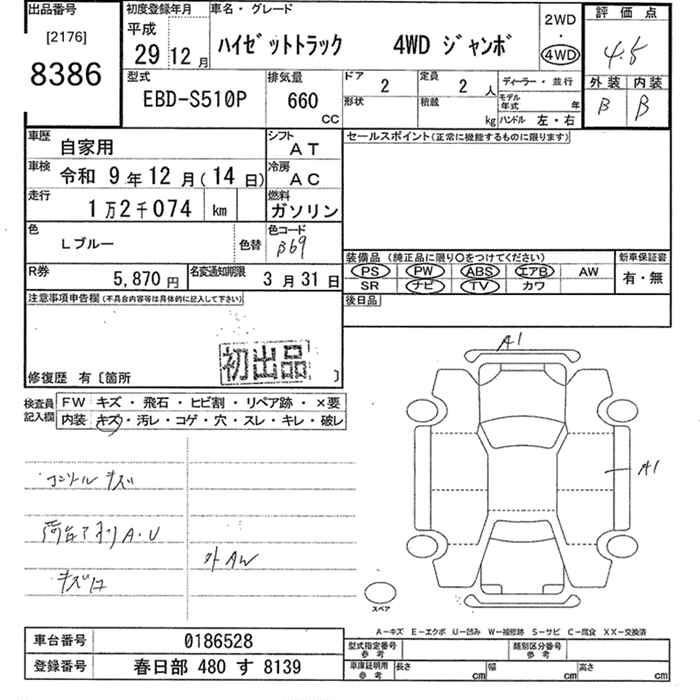 出品番号
[2176]
8386
初度登録年月
平成
29 12 月
車名・グレード
ハイゼットトラック 4WD ジャンボ
2WD
・
4WD
評価点
4.5
外装 内装
B B
型式
EBD-S510P
排気量
660
CC
ドア 2
定員 2 人
形状
積載 kg
ディーラー・並行
モデル年式 年
ハンドル 左・右
車歴
自家用
シフト
AT
車検
令和 9年 12月(14日)
冷房
AC
走行
1万2千074 km
燃料
ガソリン
色
Lブルー
色替
色コード
B69
R券
5,870円
名変通知期限
3月31日
セールスポイント(正常に機能するものに限ります)
装備品(純正品に限り○をつけてください)
PS PW ABS エアB AW
SR ナビ TV カワ
新車保証書
有・無
後日品
注意事項申告欄(不具合内容等は具体的に記入して下さい)
初出品
修復歴 有〔箇所 〕
検査員記入欄
FW キズ・飛石・ヒビ割・リペア跡・×要
内装 キズ・汚レ・コゲ・穴・スレ・キレ・破レ
コンソールキズ
荷台アオリA・U
キズ
外AW
A1
A1
スペア
A−キズ E−エクボ U−凹み W−補修跡 S−サビ C−腐食 XX−交換済
車台番号
0186528
登録番号
春日部 480 す 8139
型式指定番号
参考
類別区分番号
参考
車庫証明用
参考
長さ cm
幅 cm
高さ cm